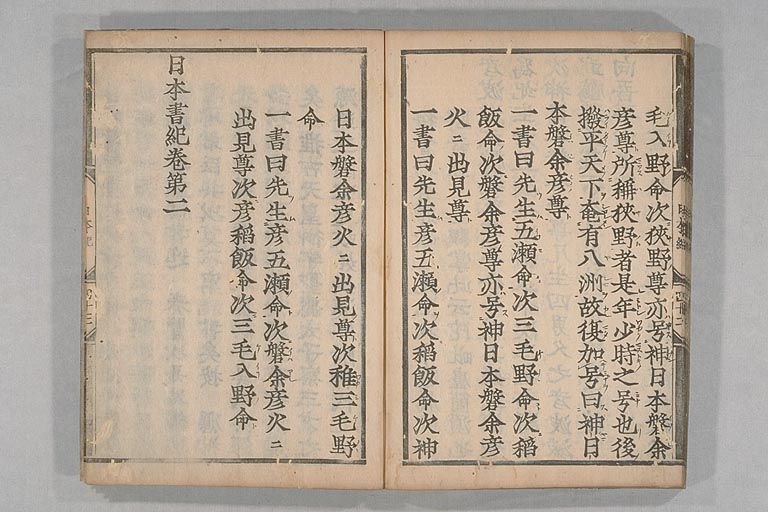 毛入野命次狹野尊亦号神日本磐余
彦尊所稱狹野者是年少時之号也後
撥平天下奄有八洲故復加号曰神日
本磐余彦尊
一書曰先生五瀬命次三毛野命次稲
飯命次磐余彦尊亦号神日本磐余彦
火ニ出見尊
一書曰先生彦五瀬命次稲飯命次神
日本磐余彦火ニ出見尊次稚三毛野
命
一書曰先生彦五瀬命次磐余彦火ニ
出見尊次彦稲飯命次三毛入野命
日本書紀卷第二